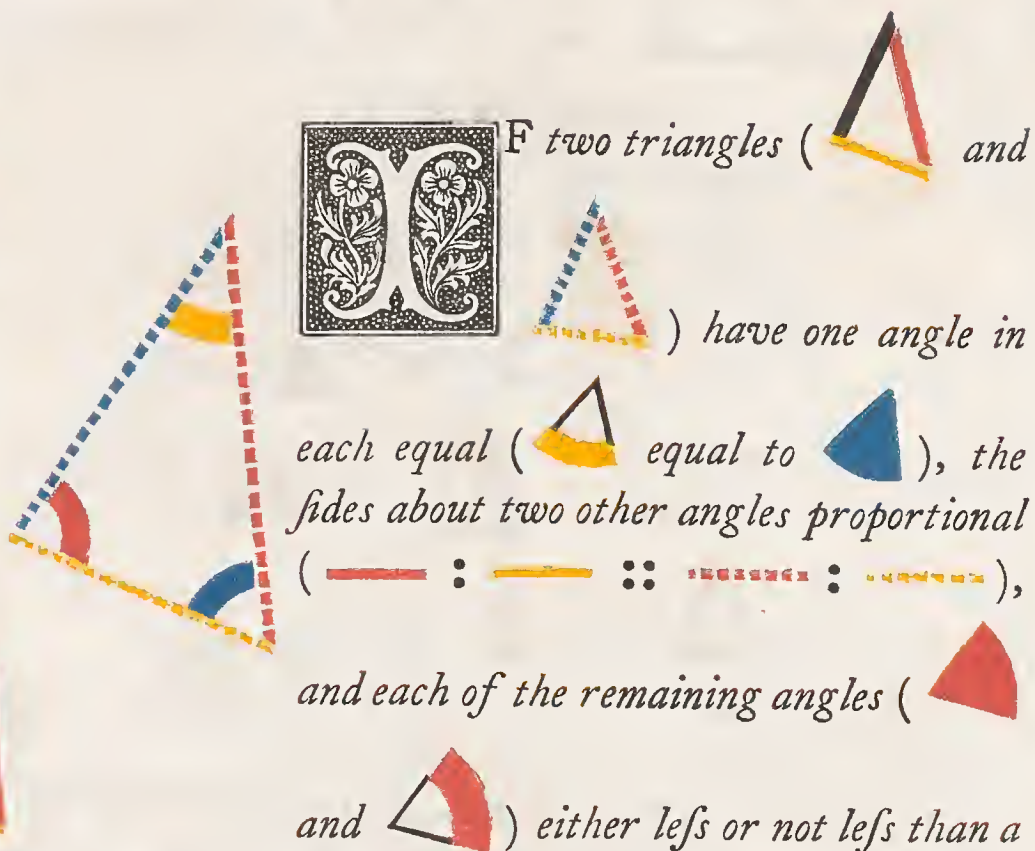 IF two triangles ( and
) have one angle in
each equal ( equal to ), the
ſides about two other angles proportional
( : :: : ),
and each of the remaining angles (
and ) either leſs or not leſs than a